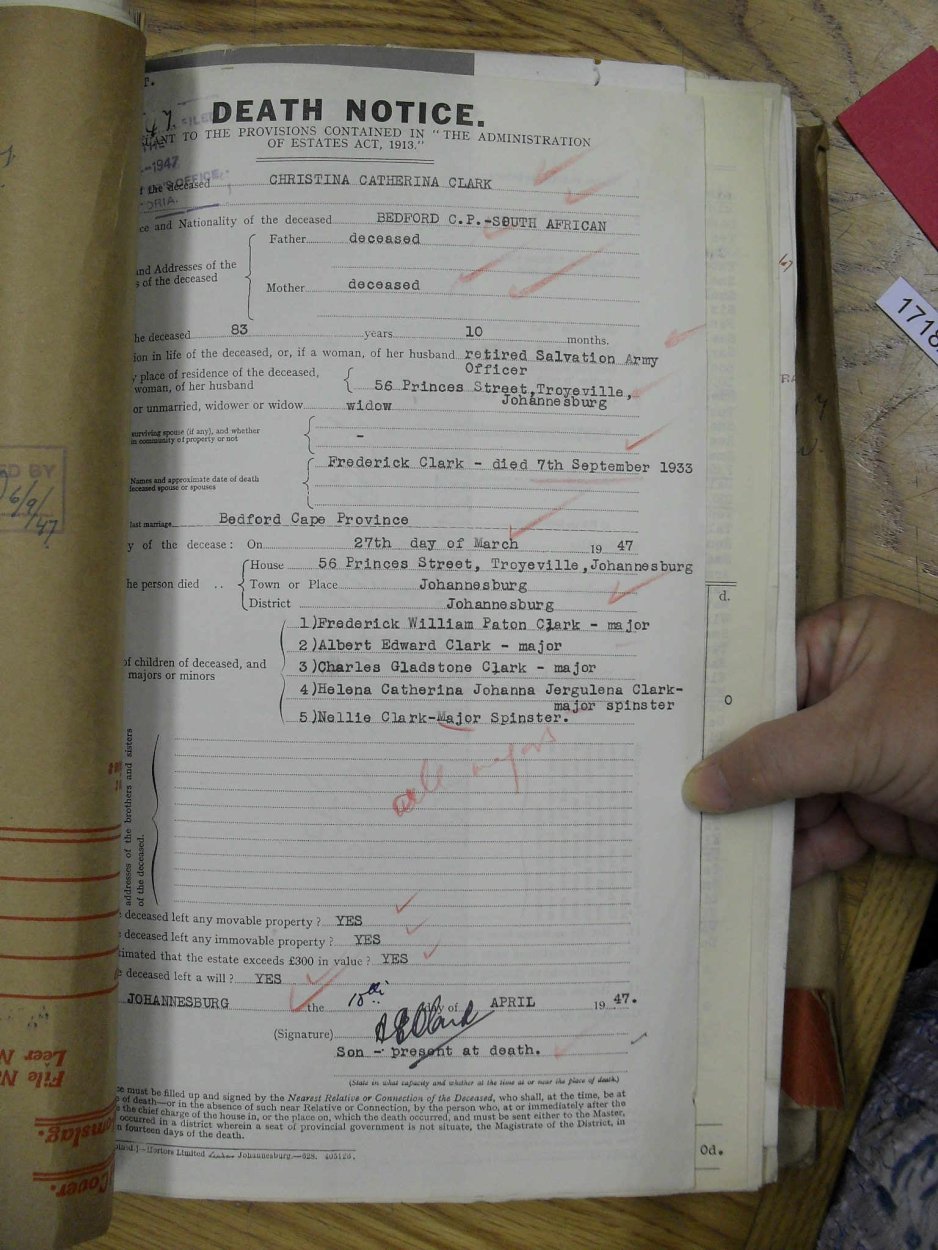 T.
47.
DEATH NOTICE.
TO THE PROVISIONS CONTAINED IN "THE ADMINISTRATION
OF ESTATES ACT, 1913."
-1947
f the deceased CHRISTINA CATHERINA CLARK
ce and Nationality of the deceased BEDFORD C.P.-SOUTH AFRICAN
Father deceased
and Addresses of the
s of the deceased
Mother deceased
he deceased 83 years 10 months.
ion in life of the deceased, or, if a woman, of her husband retired Salvation Army
Officer
y place of residence of the deceased,
woman, of her husband 56 Princes Street,Troyeville,
Johannesburg
or unmarried, widower or widow widow
surviving spouse (if any), and whether
in community of property or not -
Frederick Clark - died 7th September 1933
Names and approximate date of death
deceased spouse or spouses
last marriage Bedford Cape Province
y of the decease: On 27th day of March 19 47
House 56 Princes Street, Troyeville,Johannesburg
he person died .. Town or Place Johannesburg
District Johannesburg
1)Frederick William Paton Clark - major
2)Albert Edward Clark - major
of children of deceased, and
majors or minors
3)Charles Gladstone Clark - major
4)Helena Catherina Johanna Jergulena Clark-
major spinster
5)Nellie Clark-Major Spinster.
all majors
addresses of the brothers and sisters
of the deceased.
deceased left any movable property? YES
deceased left any immovable property? YES
timated that the estate exceeds £300 in value? YES
deceased left a will? YES
JOHANNESBURG the 10th day of APRIL 19 47.
(Signature) A E Clark
Son - present at death.
(State in what capacity and whether at the time at or near the place of death.)
ce must be filled up and signed by the Nearest Relative or Connection of the Deceased, who shall, at the time, be at
e of death—or in the absence of such near Relative or Connection, by the person who, at or immediately after the
the chief charge of the house in, or the place on, which the death occurred, and must be sent either to the Master,
occurred in a district wherein a seat of provincial government is not situate, the Magistrate of the District, in
n fourteen days of the death.
Hortors Limited Johannesburg.—628.
D BY
6/9/47
d.
0
0d.
1718
Leer N
File N
omslag.
Cover.